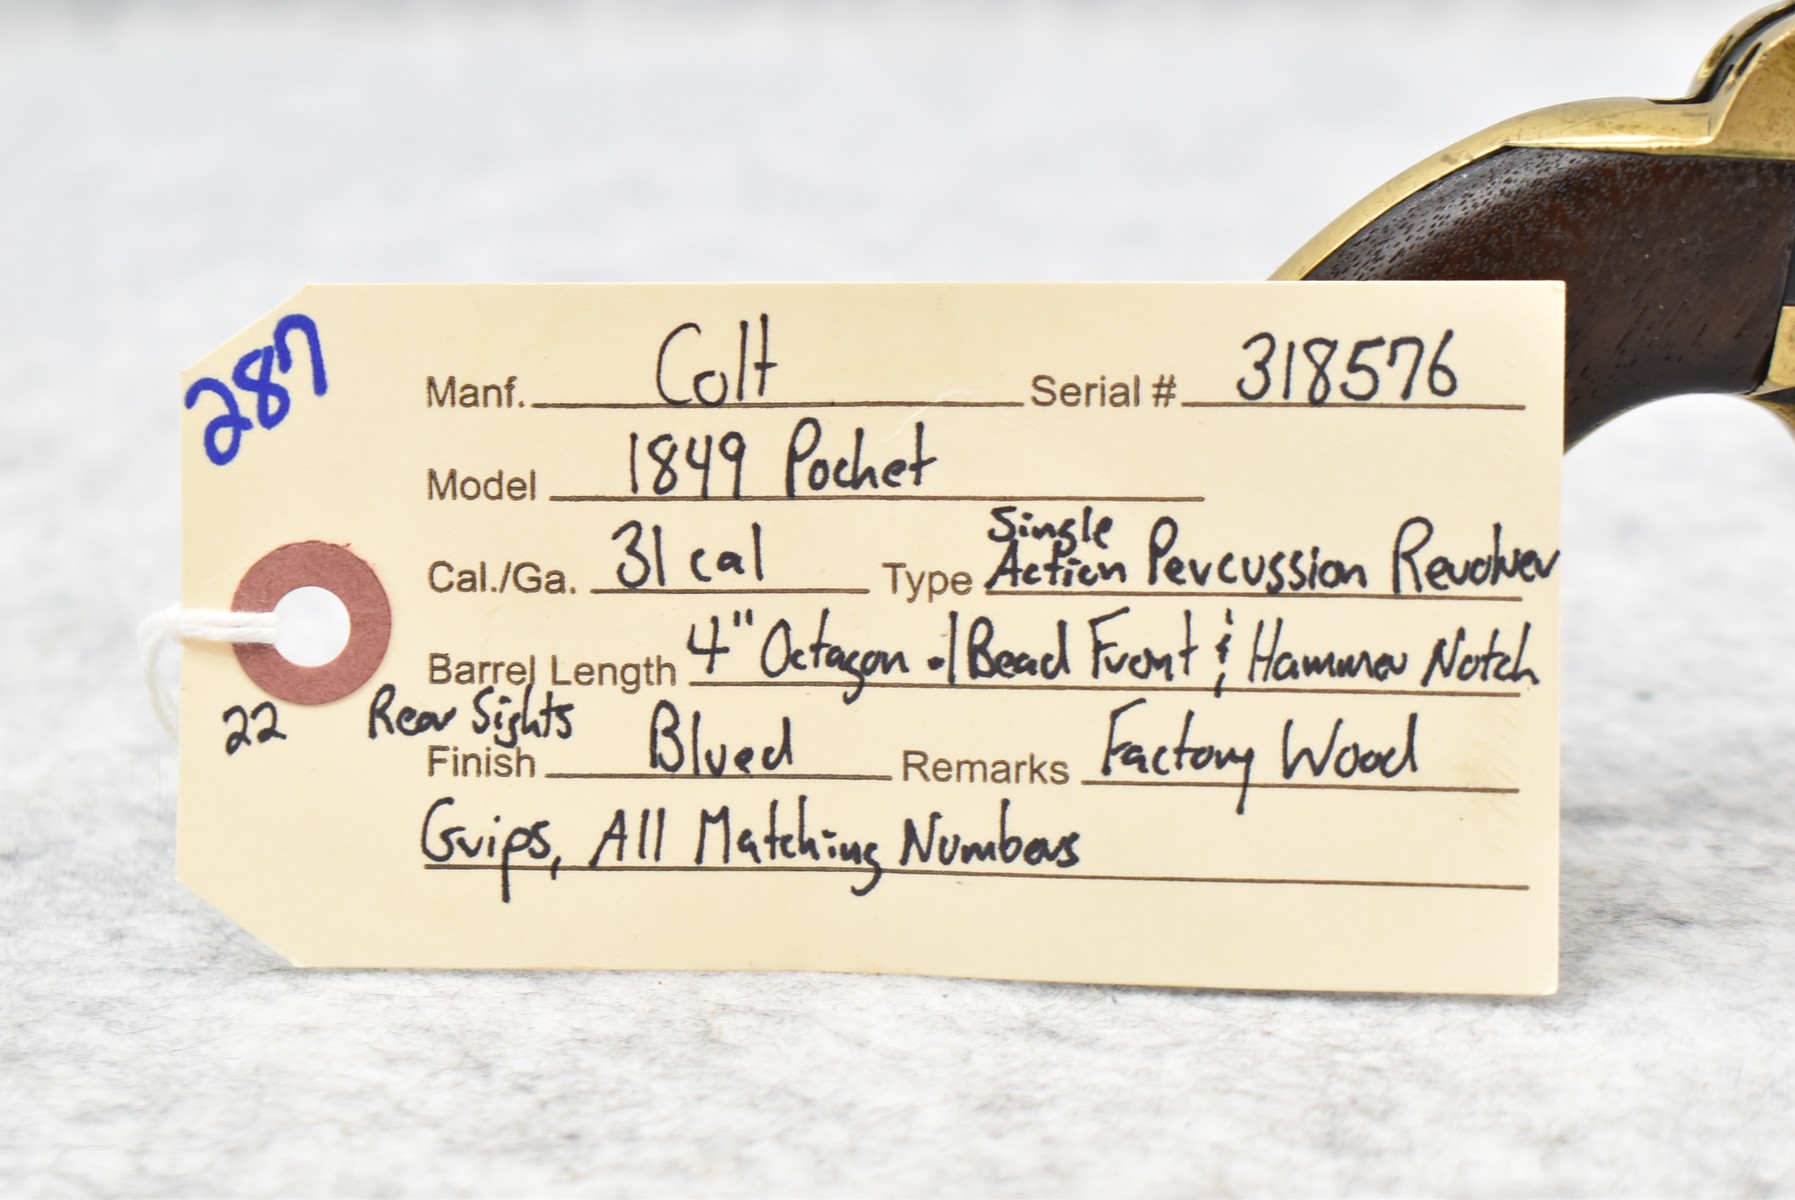 287
Manf. Colt Serial # 318576
Model 1849 Pocket
Cal./Ga. 31 cal Type Single Action Percussion Revolver
Barrel Length 4" Octagon w/ Bead Front & Hammer Notch
22 Rear Sights
Finish Blued Remarks Factory Wood
Grips, All Matching Numbers